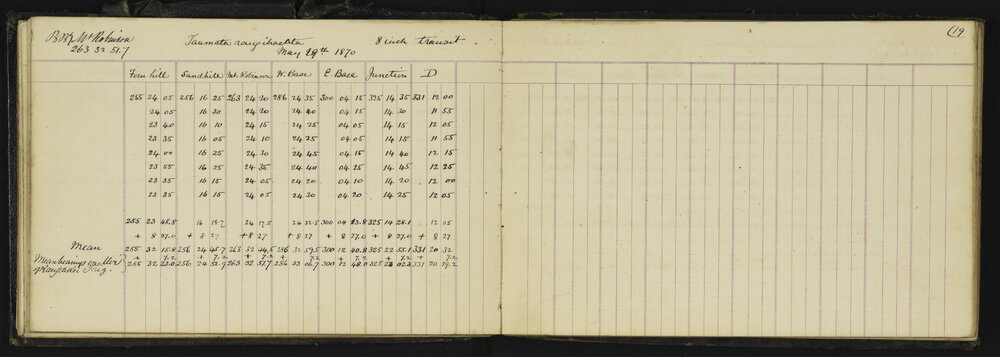 Mt Robinson Taumata 8 inch transit. (19
263 32 51.7 May 29th 1870
Fern hill Sandhill Mt. Robinson W. Base E. Base Junction D
255 24 05 256 16 25 263 24 20 286 24 35 300 04 15 325 14 35 331 12 00
24 05 16 30 24 20 24 40 04 15 14 30 11 55
23 40 16 10 24 15 24 25 04 05 14 15 12 05
23 35 16 05 24 10 24 25 04 05 14 15 11 55
24 00 16 25 24 30 24 45 04 15 14 40 12 15
23 55 16 25 24 35 24 40 04 25 14 45 12 25
23 35 16 15 24 05 24 20 04 10 14 20 12 00
23 35 16 15 24 05 24 30 04 20 14 25 12 05
255 23 48.8 16 18.7 24 17.5 24 32.5 300 04 13.8 325 14 28.1 12 05
+ 8 27.0 + 8 27 + 8 27 + 8 27 + 8 27.0 + 8 27.0 + 8 27
Mean 255 32 15.8 256 24 45.7 263 32 44.5 286 32 59.5 300 12 40.8 325 22 55.1 331 20 32
+ 7.2 + 7.2 + 7.2 + 7.2 + 7.2 + 7.2 7.2
Mean bearings on Mer.
255 32 23.0 256 24 52.9 263 32 51.7 286 33 06.7 300 12 48.0 325 23 02.3 331 20 39.2
of Trig.